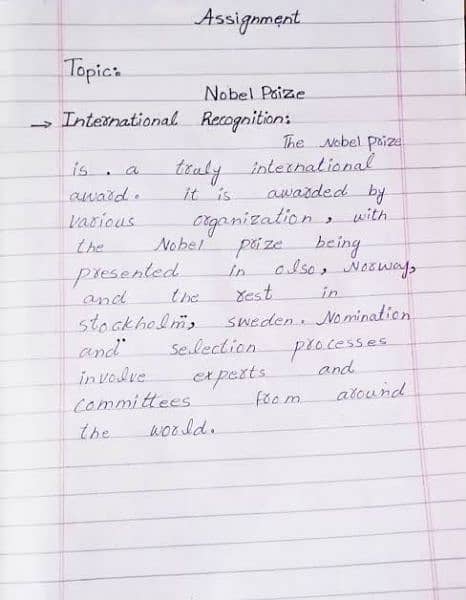 Assignment
Topic:
Nobel Prize
→ International Recognition:
The Nobel prize
is . a truly international
award. it is awarded by
various organization, with
the Nobel prize being
presented in also, Norway,
and the rest in
stockholm, sweden. Nomination
and" selection processes
involve experts and
committees from around
the world.